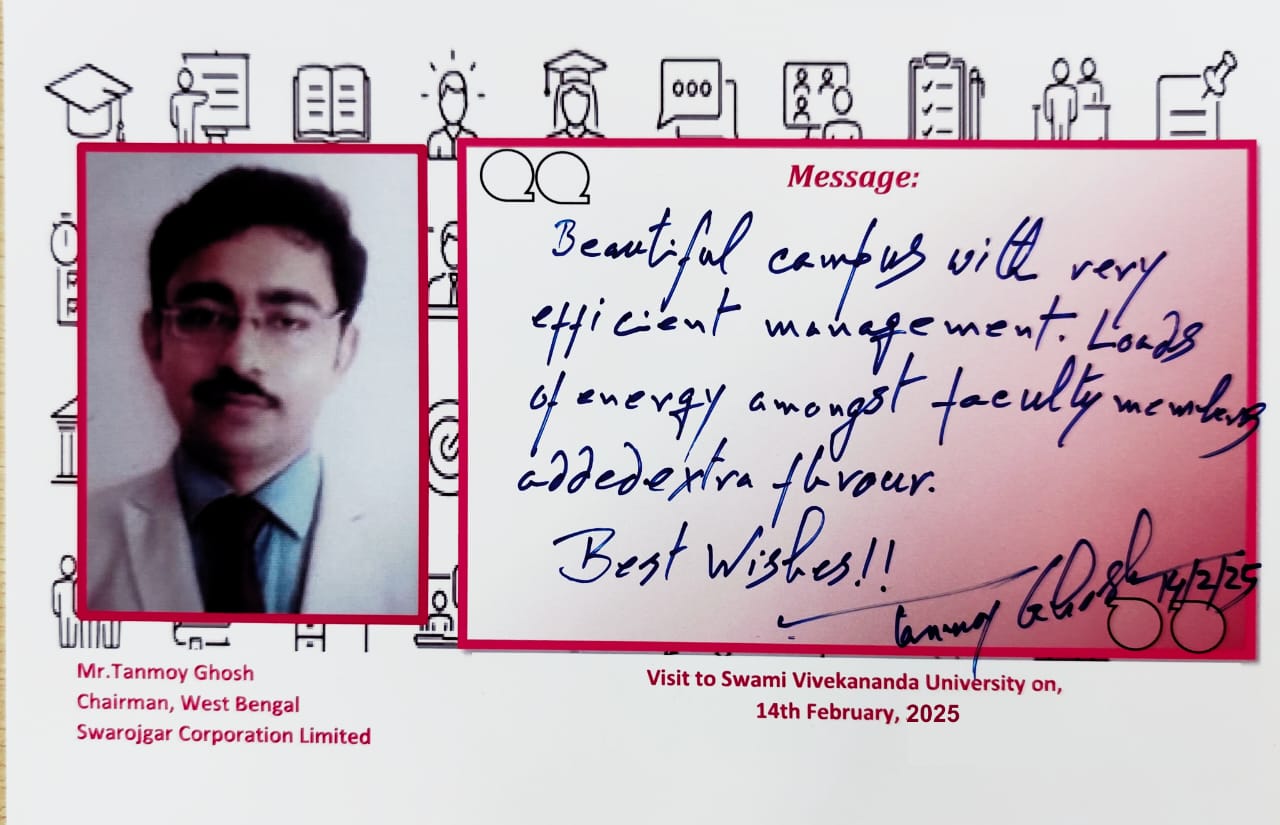 Message:
Beautiful campus with very
efficient management. Loads
of energy amongst faculty members
added extra flavour.
Best Wishes!!
Tanmoy Ghosh 14/2/25
Mr.Tanmoy Ghosh
Chairman, West Bengal
Swarojgar Corporation Limited
Visit to Swami Vivekananda University on,
14th February, 2025